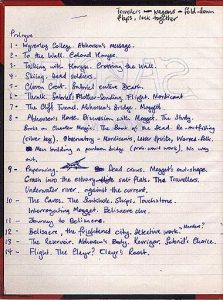 Travellers - wagons - fold-down
flaps, lock together
Prologue
1 - Wyverley College. Abhorsen's message.
2 - To the Wall. Colonel Horyse.
3 - Talking with Horyse. Crossing the Wall.
4 - Skiing. Dead soldiers.
5 - Cloven Crest. Sabriel enters Death.
6 - Thralk. Sabriel's Mother-Sending. Flight. Mordicant
7 - The Cliff Tunnel. Abhorsen's Bridge. Mogget
8 - Abhorsen's House. Discussion with Mogget. The Study.
Books on Charter Magic. The Book of the Dead. Re-outfitting
(river key). Observatory - Mordicants, lesser spirits, Warned folk.
Men building a pontoon bridge (pre-war work). No way
out.
9 - Paperwing. Dead crows. Mogget's end-shape.
Crash into the salt flats. The Travellers.
Underwater river, against the current.
10 - The Caves. The Sinkhole. Ships. Touchstone.
Interrogating Mogget. Belisaere clue.
11 - Journey to Belisaere.
12 - Belisaere, the frightened city. Detective work.
13 - The Reservoir. Abhorsen's Body. Kerrigor. Sabriel's Choice.
14 - Flight. The Clayr? Clayr's Roost.